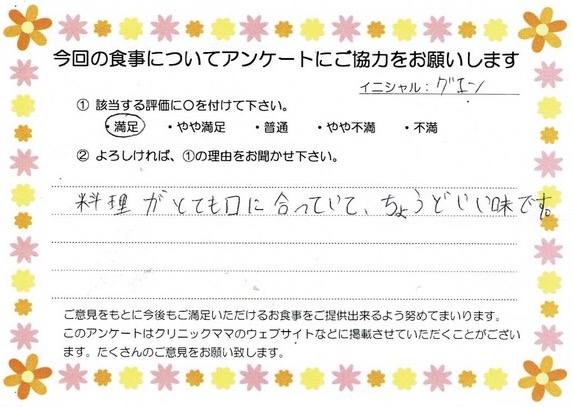 今回の食事についてアンケートにご協力をお願いします
イニシャル：グエン
① 該当する評価に○を付けて下さい。
・満足 ・やや満足 ・普通 ・やや不満 ・不満
② よろしければ、①の理由をお聞かせ下さい。
料理がとても口に合っていて、ちょうどいい味です。
ご意見をもとに今後もご満足いただけるお食事をご提供出来るよう努めてまいります。
このアンケートはクリニックママのウェブサイトなどに掲載させていただくことがござい
ます。たくさんのご意見をお願い致します。